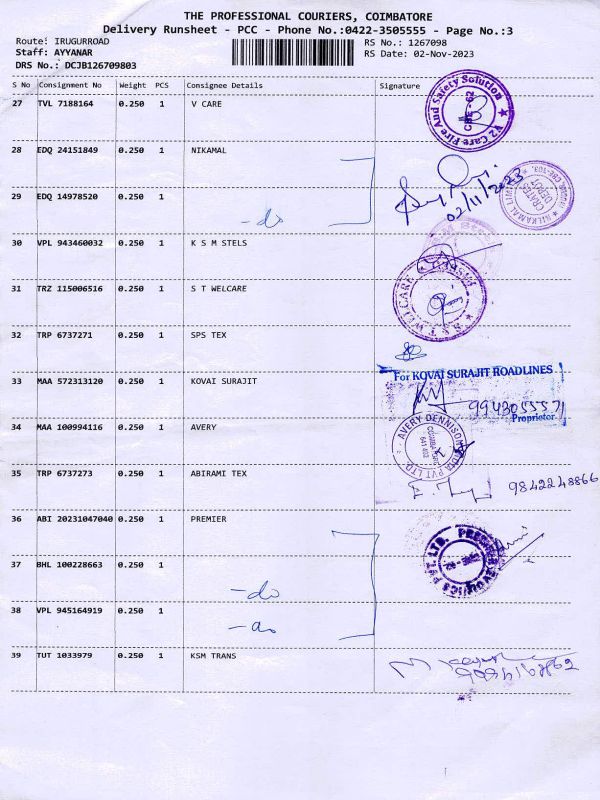 THE PROFESSIONAL COURIERS, COIMBATORE
Delivery Runsheet - PCC - Phone No.:0422-3505555 - Page No.:3
Route: IRUGURROAD RS No.: 1267098
Staff: AYYANAR RS Date: 02-Nov-2023
DRS No.: DCJB126709803
S No Consignment No Weight PCS Consignee Details Signature
27 TVL 7188164 0.250 1 V CARE
V2 Care Fire And Safety Solution
CBE - 62
28 EDQ 24151849 0.250 1 NIKAMAL
02/11/2023
CRATES DEPOT
29 EDQ 14978520 0.250 1
- do
30 VPL 943460032 0.250 1 K S M STELS
31 TRZ 115006516 0.250 1 S T WELCARE
S & T WELCARE
32 TRP 6737271 0.250 1 SPS TEX
33 MAA 572313120 0.250 1 KOVAI SURAJIT
For KOVAI SURAJIT ROADLINES
9943055571
Proprietor
34 MAA 100994116 0.250 1 AVERY
AVERY DENNISON INDIA PVT LTD
35 TRP 6737273 0.250 1 ABIRAMI TEX
9842248866
36 ABI 20231047040 0.250 1 PREMIER
37 BHL 100228663 0.250 1
- do
38 VPL 945164919 0.250 1
- do
39 TUT 1033979 0.250 1 KSM TRANS